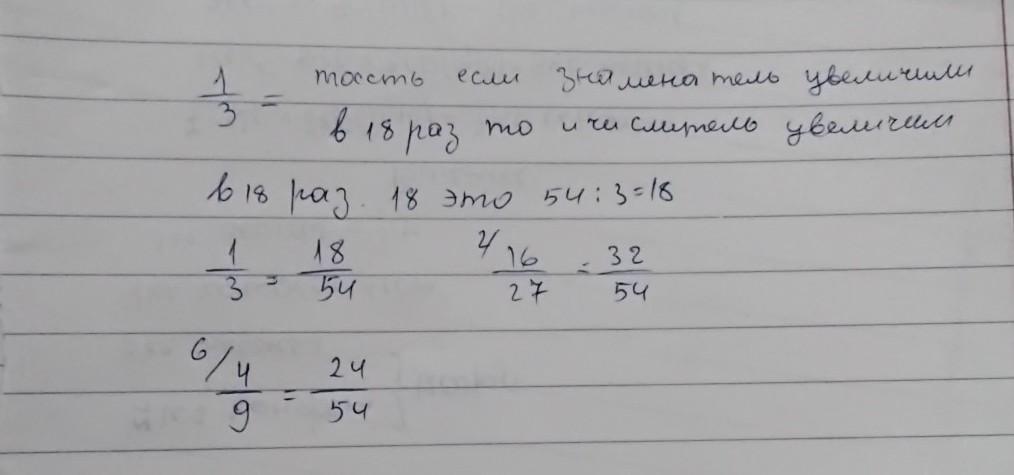 1/3 = тоесть если знаменатель увеличили
в 18 раз то и числитель увеличим
в 18 раз. 18 это 54 : 3 = 18
1/3 = 18/54 2/ 16/27 = 32/54
6/ 4/9 = 24/54